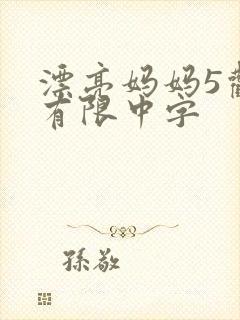 漂亮妈妈5觀
有限中字
孫敬